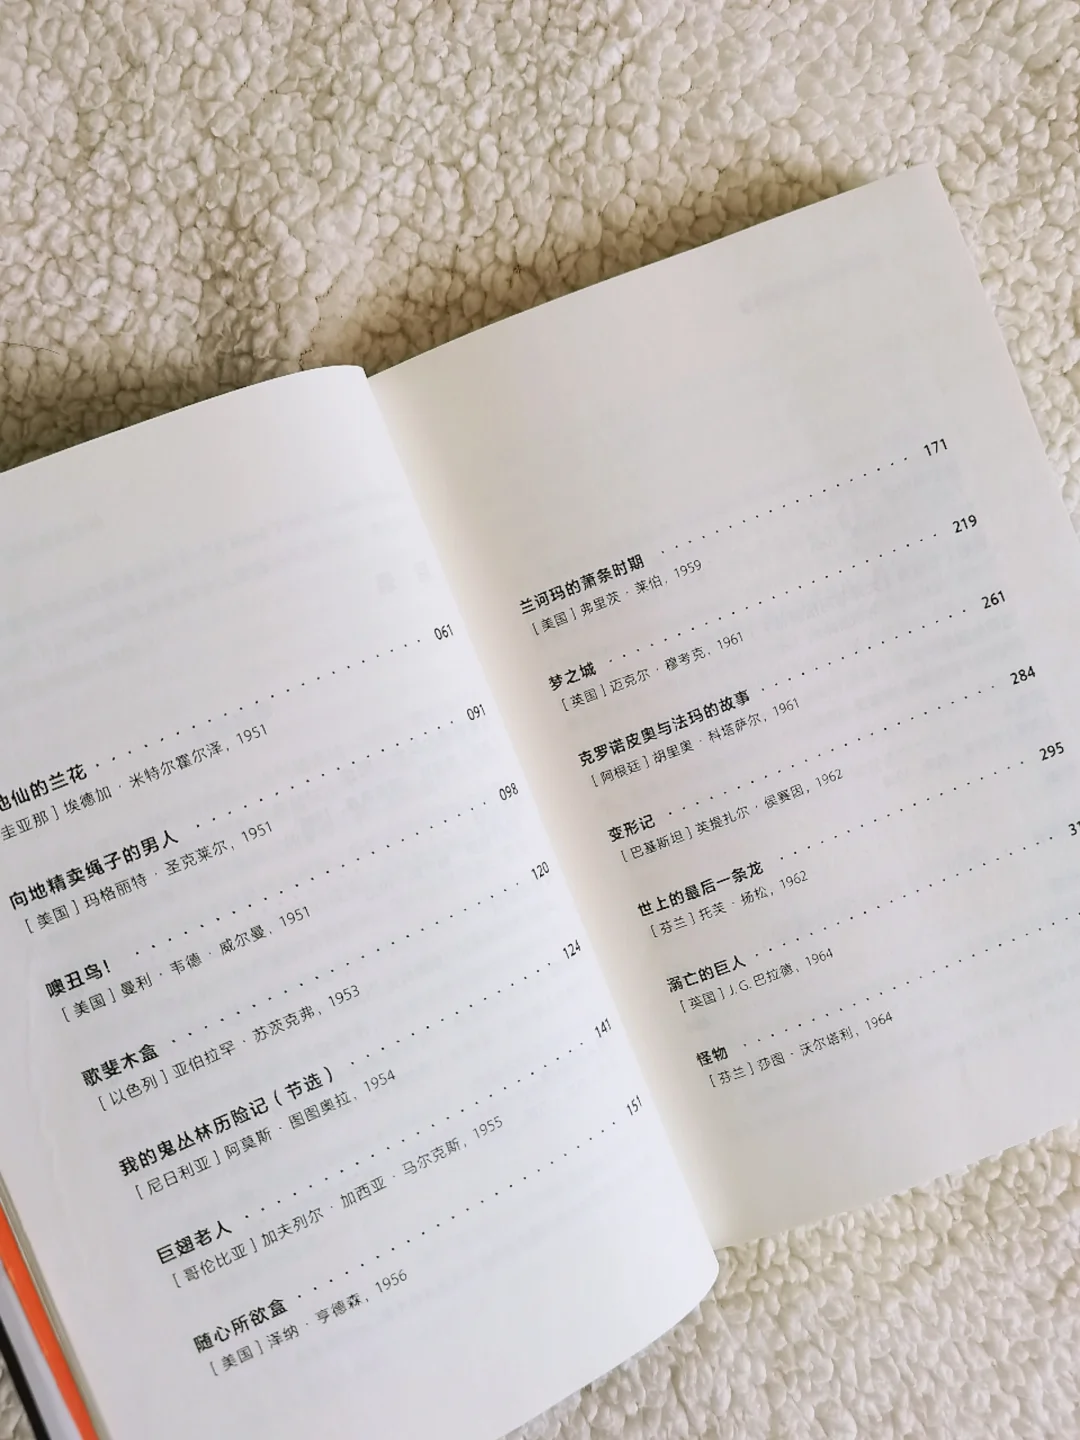 地仙的兰花 · · · · · · · · · · · · · · · · · · 061
圭亚那］埃德加 · 米特尔霍尔泽，1951
向地精卖绳子的男人 · · · · · · · · · · · · · · · 091
［美国］玛格丽特 · 圣克莱尔，1951
噢丑鸟！ · · · · · · · · · · · · · · · · · · 098
［美国］曼利 · 韦德 · 威尔曼，1951
歌斐木盒 · · · · · · · · · · · · · · · · · · 120
［以色列］亚伯拉罕 · 苏茨克弗，1953
我的鬼丛林历险记（节选） · · · · · · · · · · · · 124
［尼日利亚］阿莫斯 · 图图奥拉，1954
巨翅老人 · · · · · · · · · · · · · · · · · · 141
［哥伦比亚］加夫列尔 · 加西亚 · 马尔克斯，1955
随心所欲盒 · · · · · · · · · · · · · · · · · 151
［美国］泽纳 · 亨德森，1956
兰诃玛的萧条时期 · · · · · · · · · · · · · · · 171
［美国］弗里茨 · 莱伯，1959
梦之城 · · · · · · · · · · · · · · · · · · · 219
［英国］迈克尔 · 穆考克，1961
克罗诺皮奥与法玛的故事 · · · · · · · · · · · · · 261
［阿根廷］胡里奥 · 科塔萨尔，1961
变形记 · · · · · · · · · · · · · · · · · · · 284
［巴基斯坦］英提扎尔 · 侯赛因，1962
世上的最后一条龙 · · · · · · · · · · · · · · · 295
［芬兰］托芙 · 扬松，1962
溺亡的巨人 · · · · · · · · · · · · · · · · ·
［英国］J. G. 巴拉德，1964
怪物 · · · · · · · · · · · · · · · · · · ·
［芬兰］莎图 · 沃尔塔利，1964